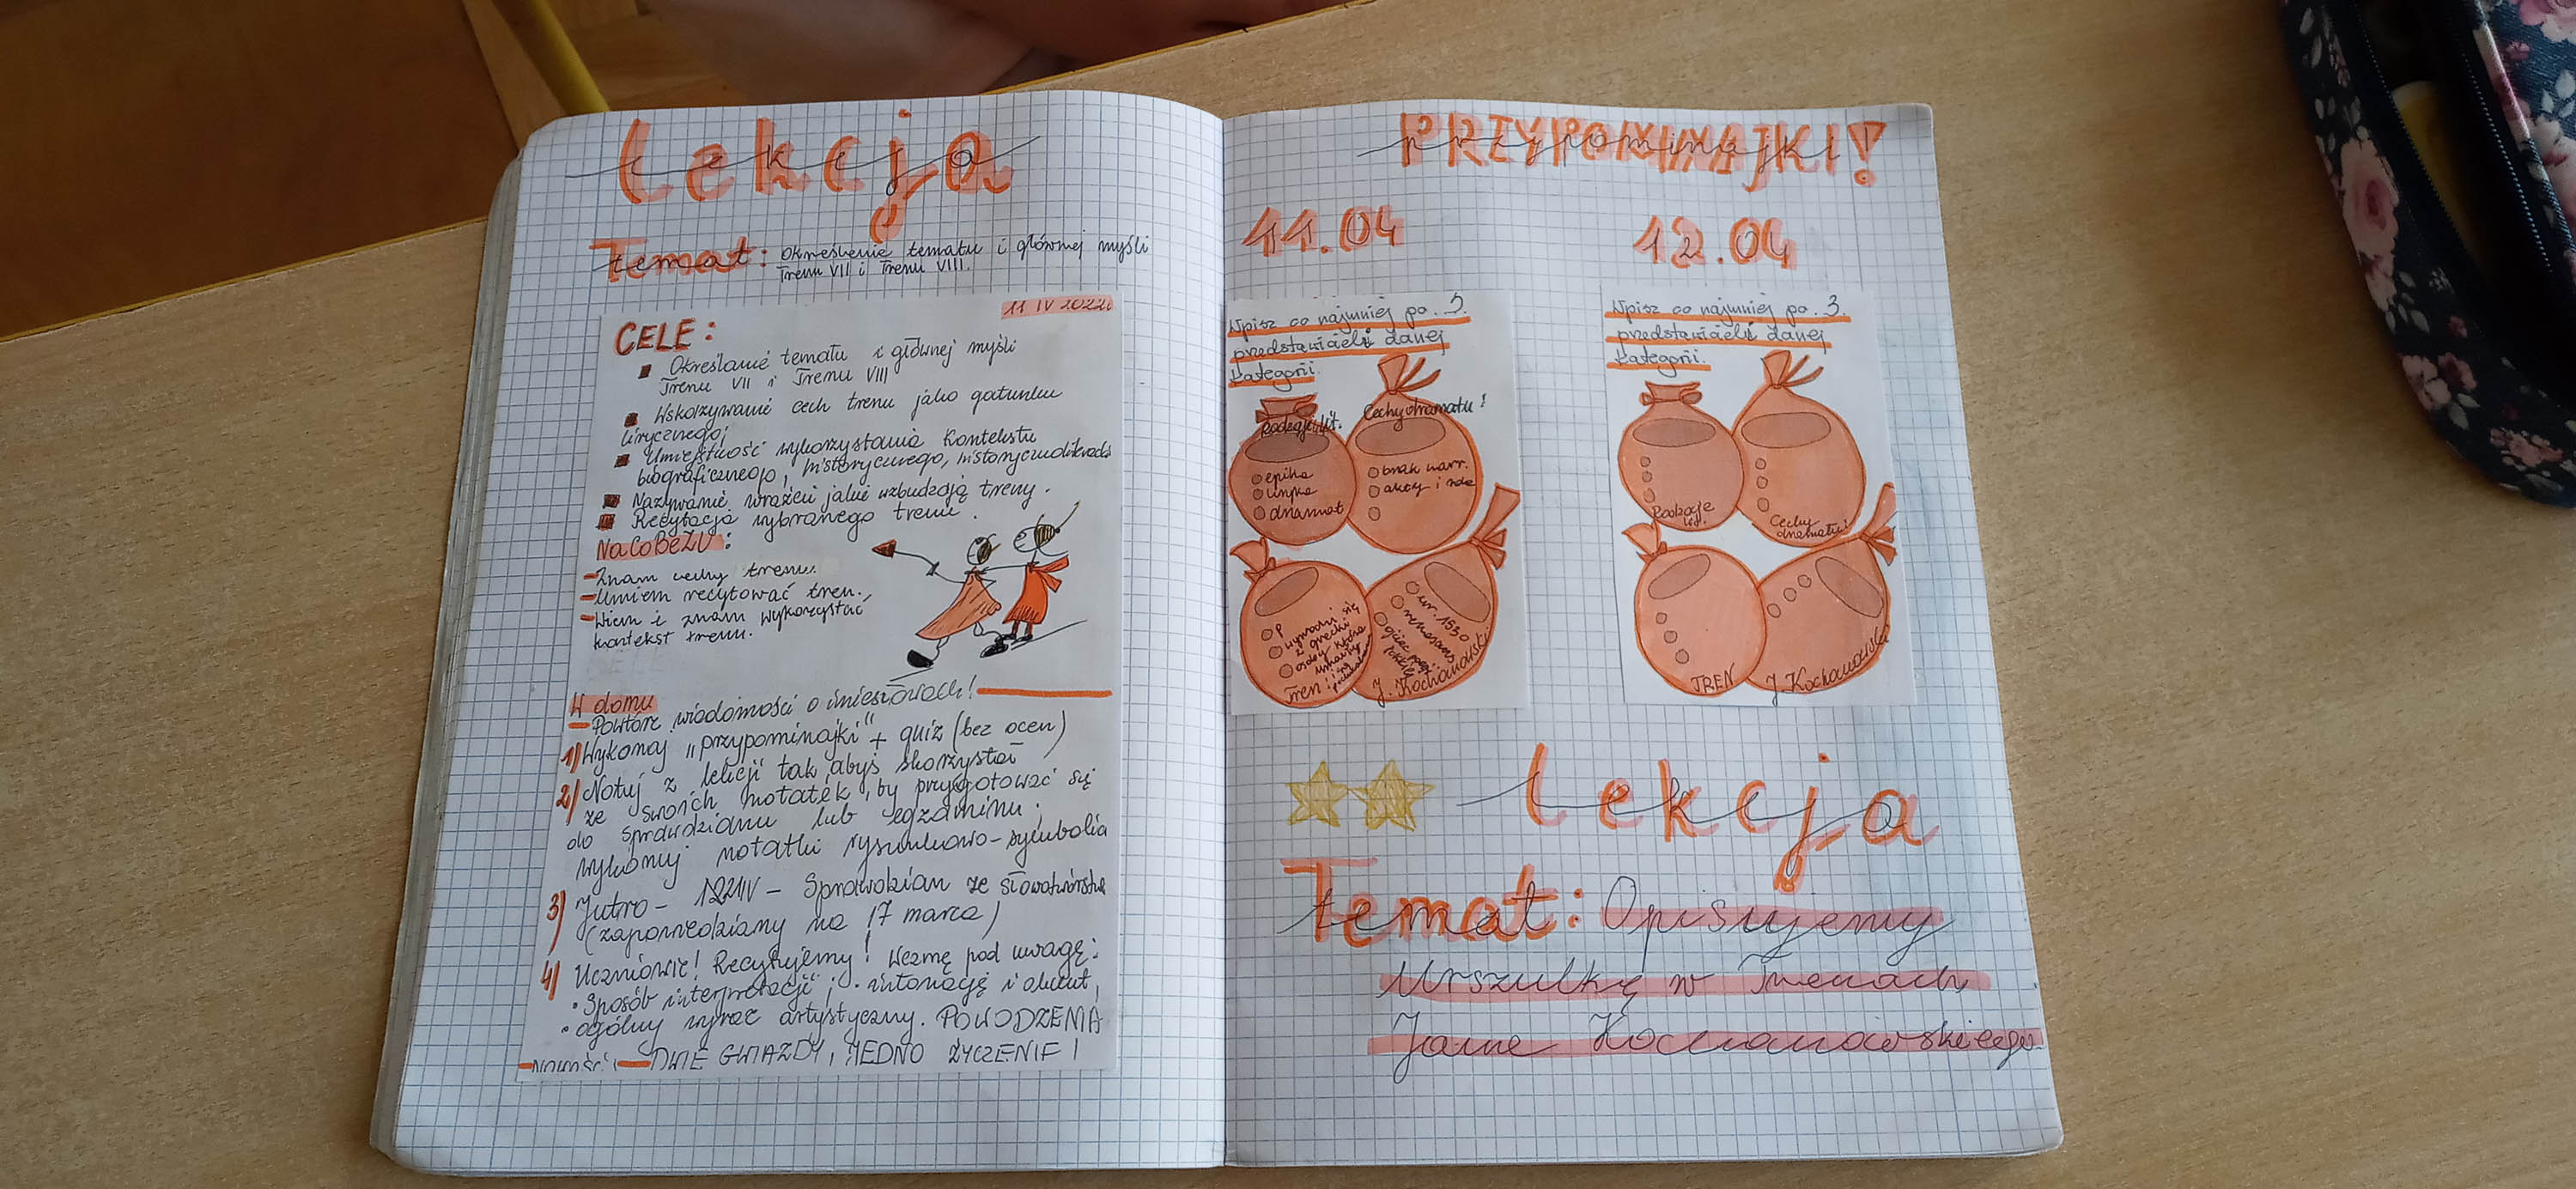 Lekcja
Temat: Określenie tematu i głównej myśli
Trenu VII i Trenu VIII.
11 IV 2022r
CELE:
Określanie tematu i głównej myśli
Trenu VII i Trenu VIII
Wskazywanie cech trenu jako gatunku
lirycznego;
Umiejętność wykorzystania kontekstu
biograficznego, historycznego,
Nazywanie wrażeń jakie wzbudzają treny.
Recytacja wybranego trenu.
NaCoBeZU:
- Znam cechy trenu.
- Umiem recytować tren.,
- Wiem i znam wykorzystać
kontekst trenu.
W domu
- Powtórz wiadomości o imiesłowach!
1) Wykonaj „przypominajki" + quiz (bez ocen)
2) Notuj z lekcji tak abyś skorzystał
ze swoich notatek, by przygotować się
do sprawdzianu lub egzaminu;
wykonuj notatki rysunkowo-symbolia
3) Jutro - 12 IV - Sprawdzian ze słowotwórstwa
(zapowiedziany na 17 marca)
4) Uczniowie! Recytujemy! Wezmę pod uwagę:
• Sposób interpretacji; • intonację i akcent,
• ogólny wyraz artystyczny. POWODZENIA
- Nowość! - DWIE GWIAZDY, JEDNO ŻYCZENIE!
PRZYPOMINAJKI!
11.04
Wpisz co najmniej po 3.
przedstawicieli danej
kategorii.
Rodzaje lit.
epika
liryka
dramat
Cechy dramatu!
brak narr.
akty i
wywodzi się
z grecki
osoby która
Tren
ur. 1530
renesans
ojciec
J. Kochanowski
12.04
Wpisz co najmniej po 3.
przedstawicieli danej
kategorii.
Rodzaje
lit.
Cechy
dramatu!
TREN
J. Kochanowski
Lekcja
Temat: Opisujemy
Urszulkę w Trenach
Jana Kochanowskiego.